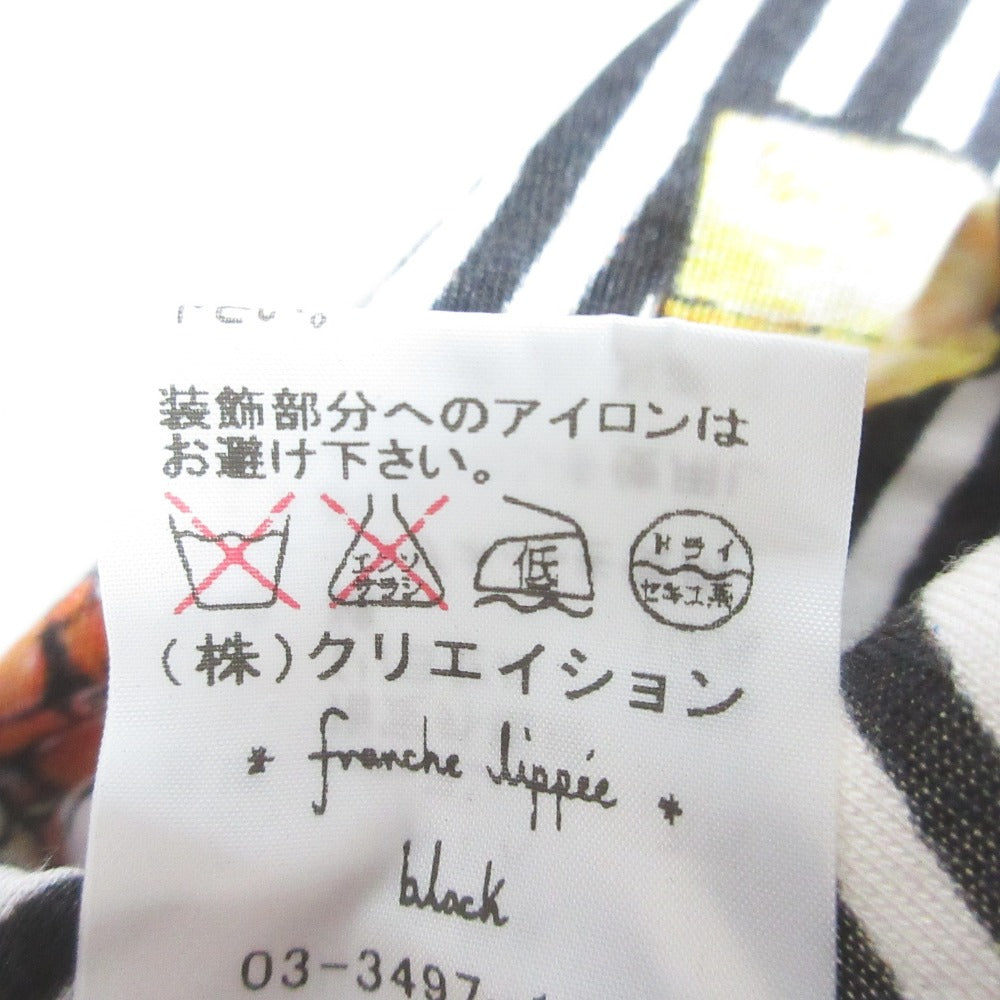 装飾部分へのアイロンは
お避け下さい。
エンソ
サラシ
低
ドライ
セキユ系
(株)クリエイション
* franche lippée *
black
03-3497